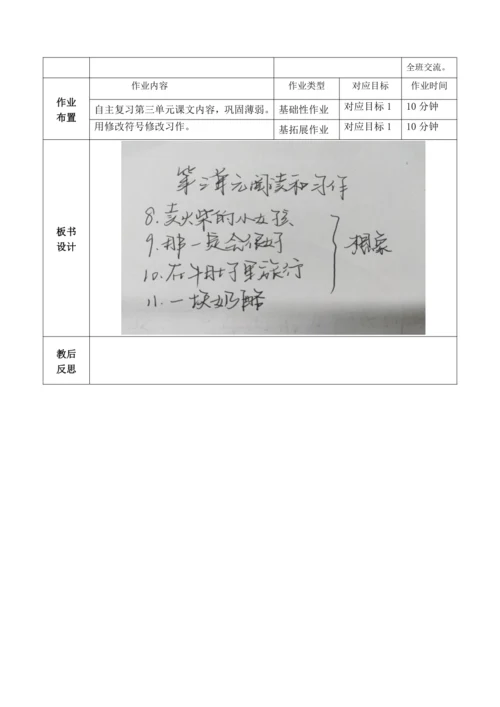 全班交流。
作业布置
作业内容 作业类型 对应目标 作业时间
自主复习第三单元课文内容，巩固薄弱。 基础性作业 对应目标 1 10 分钟
用修改符号修改习作。 基拓展作业 对应目标 1 10 分钟
板书设计
第三单元阅读和习作
8.卖火柴的小女孩
9.那一定会很好
10.在牛肚子里旅行
11.一块奶酪
教后反思